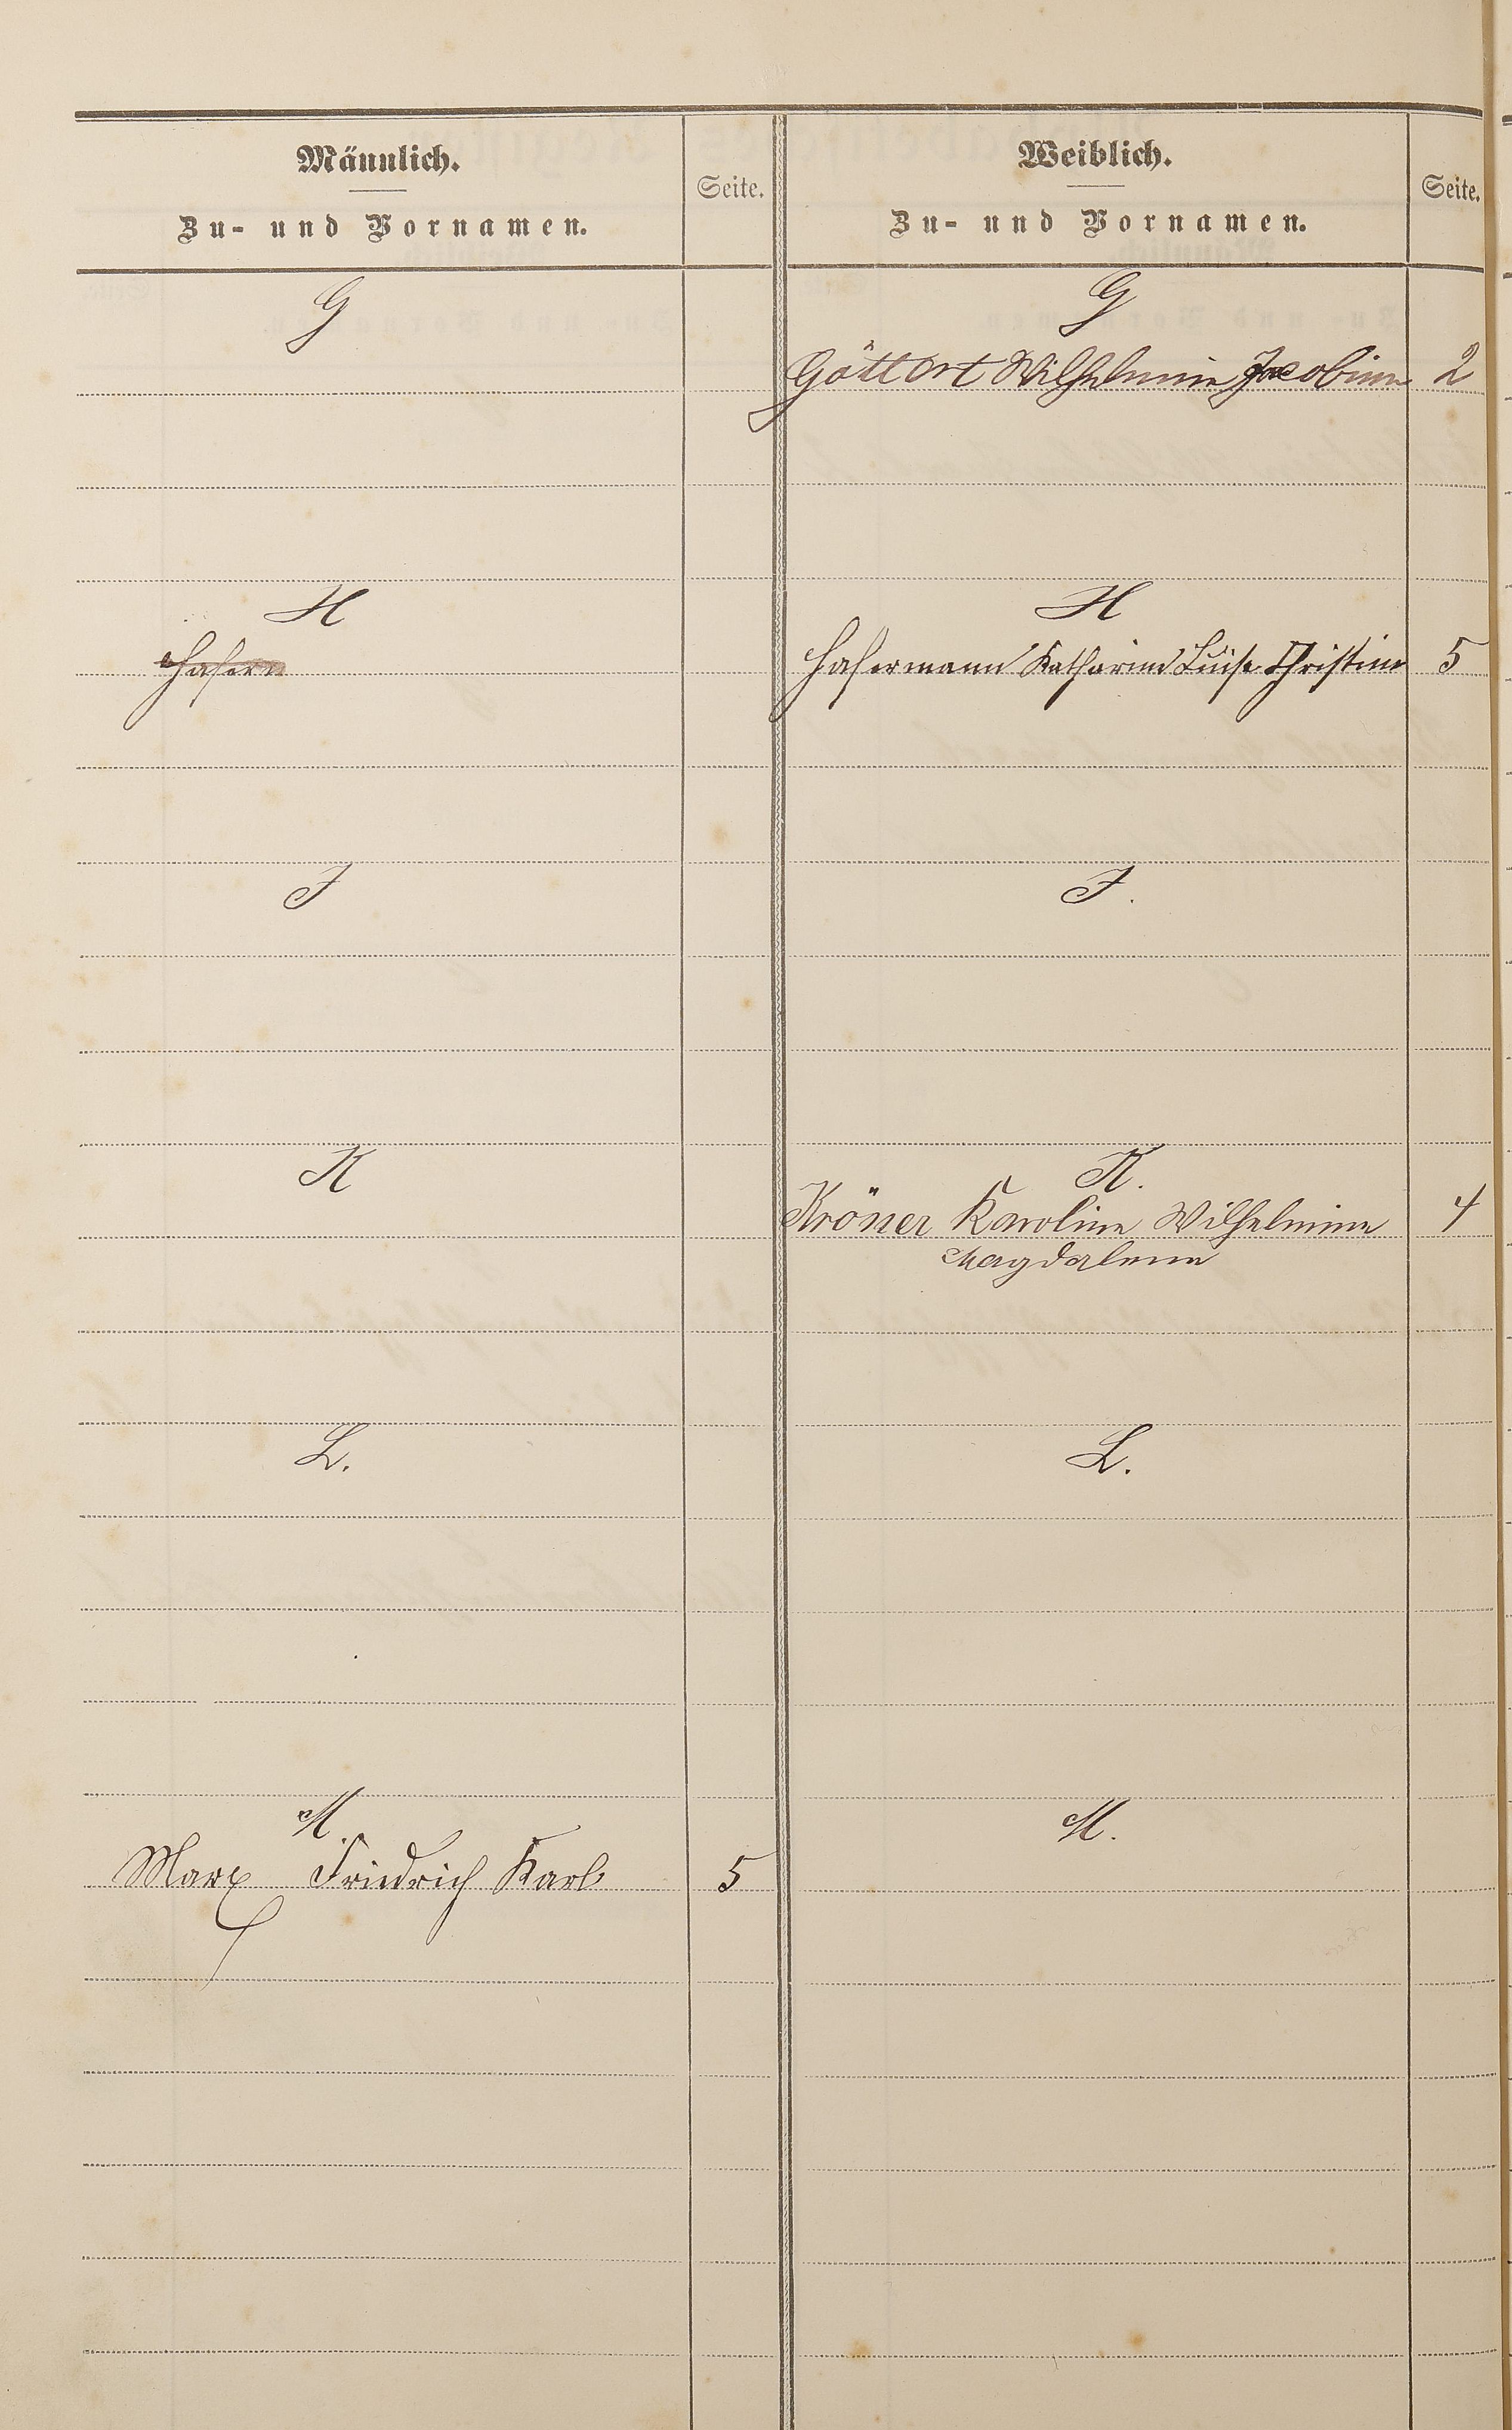 Männlich.
Zu- und Vornamen.
Seite.
Weiblich.
Zu- und Vornamen.
Seite.
G
G
Göttert Wilhelmine Jacobine 2
H
H
Hasermann Katharine Luise Christine 5
J
J.
K
K.
Kröner Karoline Wilhelmine 4
Magdalene
L.
L.
M.
M.
Marx Friedrich Karl 5